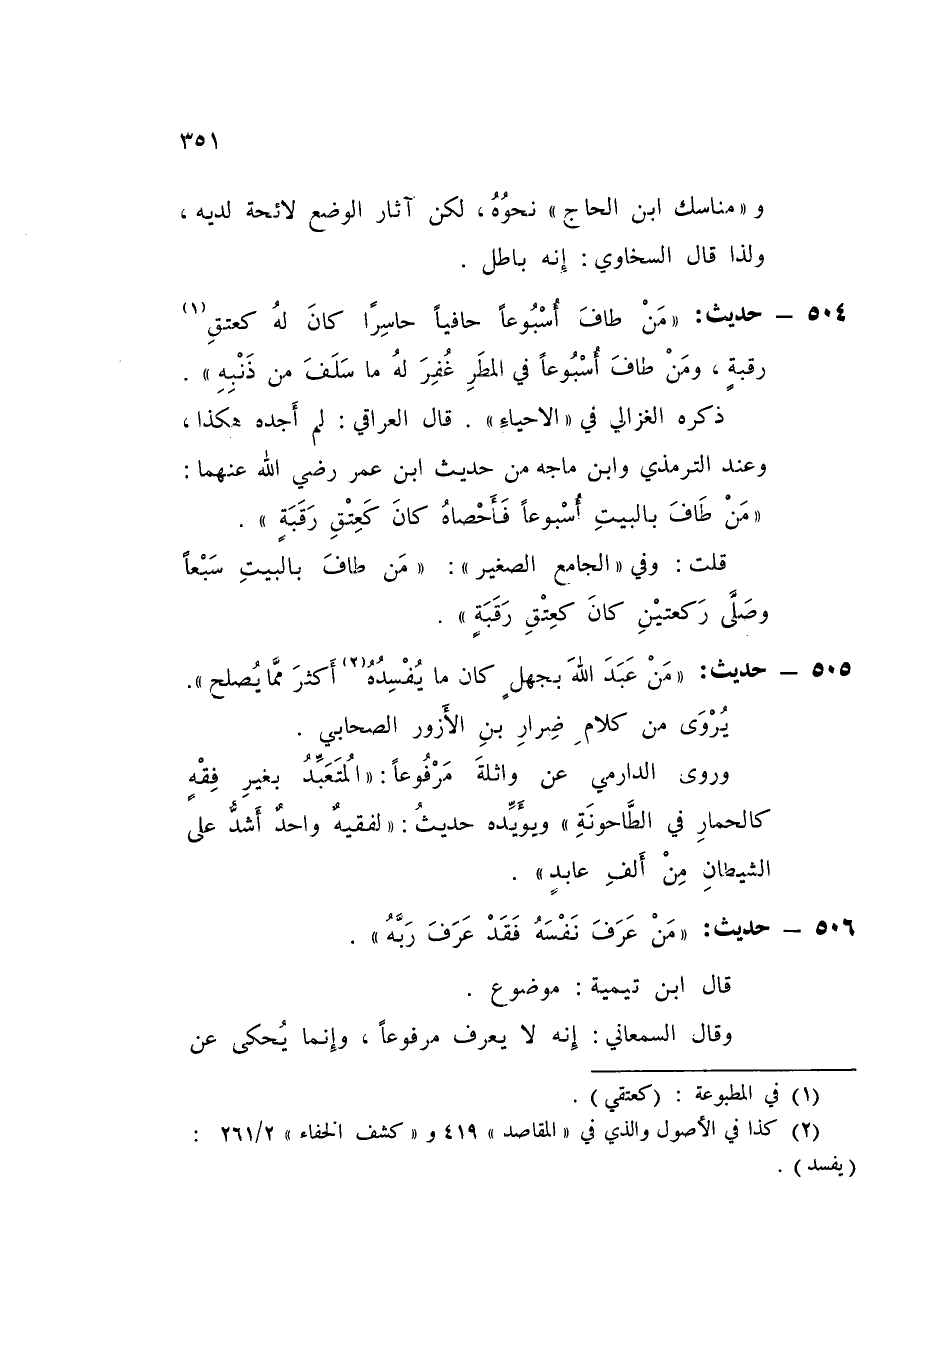 ٣٥١
و «مناسك ابن الحاج» نحوُهُ، لكن آثار الوضع لائحة لديه،
ولذا قال السخاوي: إنه باطل .
٥٠٤ – حديث: «مَنْ طافَ أُسْبُوعاً حافياً حاسِرًا كانَ لهُ كعتقِ(١)
رقبةٍ، ومَنْ طافَ أُسْبُوعاً في المطَرِ غُفِرَ لهُ ما سَلَفَ من ذَنْبِهِ» .
ذكره الغزالي في «الاحياء» . قال العراقي: لم أجده هكذا،
وعند الترمذي وابن ماجه من حديث ابن عمر رضي الله عنهما:
«مَنْ طَافَ بالبيتِ أُسْبوعاً فَأَحْصاهُ كانَ كَعِتْقِ رَقَبَةٍ» .
قلت: وفي «الجامع الصغير»: «مَن طافَ بالبيتِ سَبْعاً
وصَلَّى رَكعتيْنِ كانَ كعِتْقِ رَقَبَةٍ» .
٥٠٥ – حديث: «مَنْ عَبَدَ اللهَ بجهلٍ كان ما يُفْسِدُهُ(٢) أكثرَ ممَّا يُصلح».
يُرْوَى من كلامِ ضِرارِ بنِ الأَزور الصحابي .
وروى الدارمي عن واثلةَ مَرْفُوعاً: «الُمتَعَبِّدُ بغيرِ فِقْهٍ
كالحمارِ في الطَّاحونَةِ» ويؤَيِّده حديثُ: «لفقيهٌ واحدٌ أَشدُّ على
الشيطانِ مِنْ أَلفِ عابدٍ» .
٥٠٦ – حديث: «مَنْ عَرَفَ نَفْسَهُ فَقَدْ عَرَفَ رَبَّهُ» .
قال ابن تيمية: موضوع .
وقال السمعاني: إنه لا يعرف مرفوعاً، وإنما يُحكى عن
(١) في المطبوعة : (كعتقي) .
(٢) كذا في الأصول والذي في «المقاصد» ٤١٩ و «كشف الخفاء» ٢/٢٦١ :
(يفسد) .